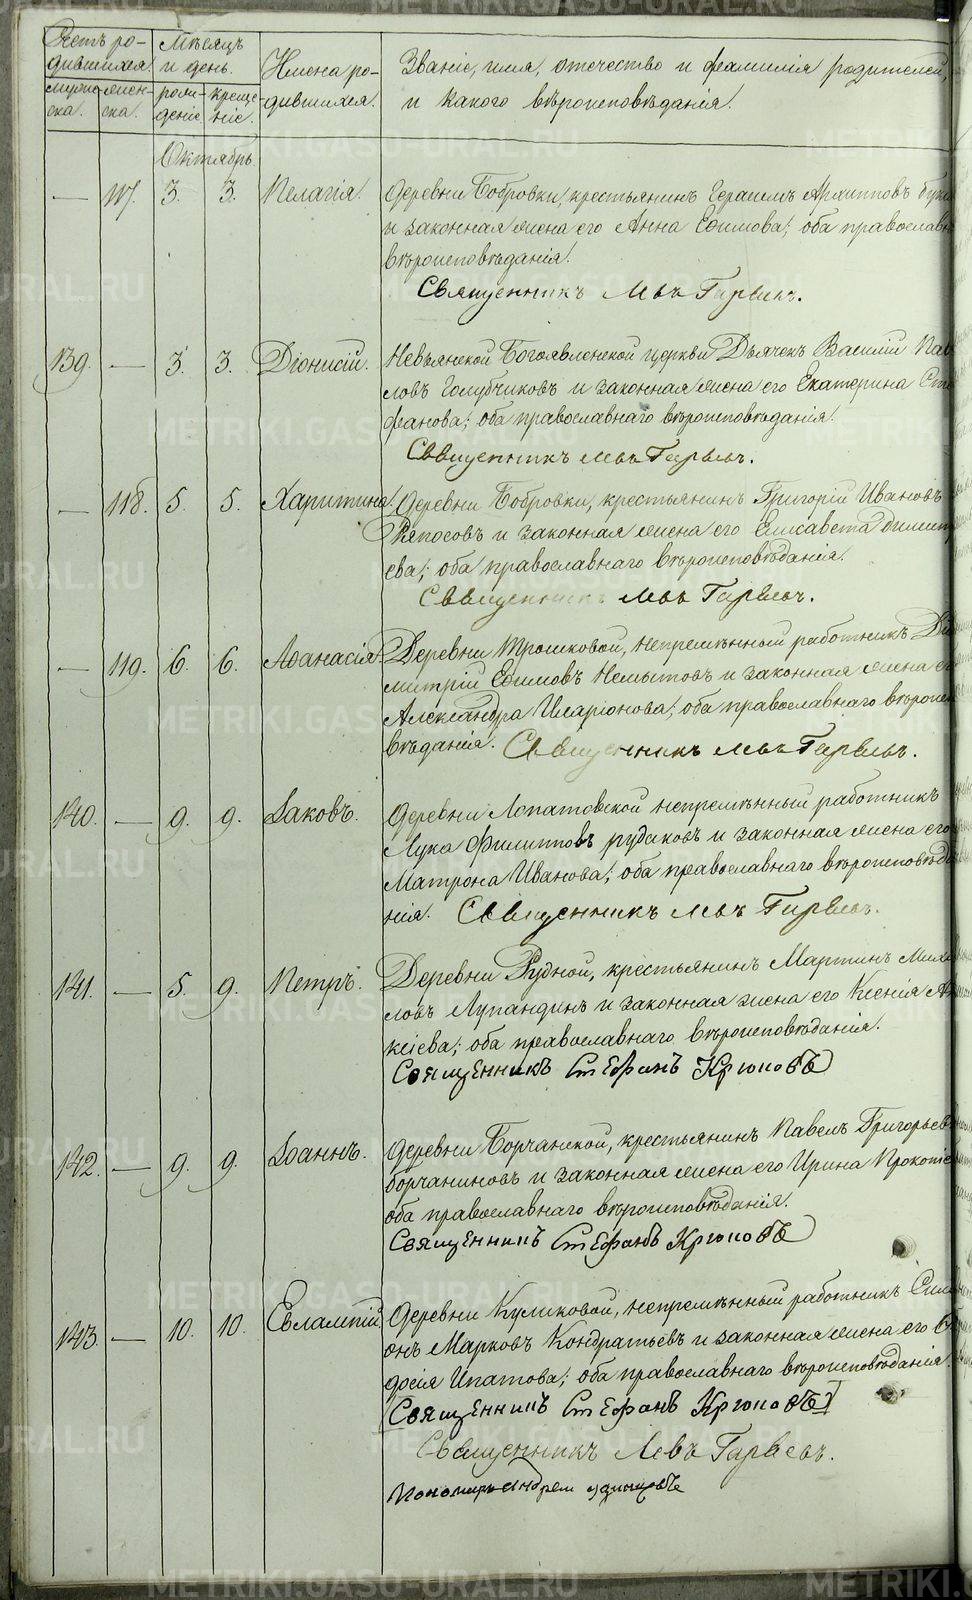 Счетъ ро-
дившихся.
Мѣсяцъ
и день.
Имена ро-
дившихся.
Званіе, имя, отечество и фамилія родителей,
и какого вѣроисповѣданія.
муже-
ска.
жен-
ска.
рож-
деніе
креще-
ніе.
Октябрь.
— 117. 3. 3. Пелагія. Деревни Бобровки, крестьянинъ Герасимъ Архиповъ
и законная жена его Анна Ефимова; оба православн
вѣроисповѣданія.
Священникъ Левъ Гаряевъ.
139. — 3. 3. Діонисій. Невьянской Богоявленской церкви Дьячекъ Василій Пав
ловъ Голубчиковъ и законная жена его Екатерина Сте
фанова; оба православнаго вѣроисповѣданія.
Священникъ Левъ Гаряевъ.
— 118. 5. 5. Харитина. Деревни Бобровки, крестьянинъ Григорій Ивановъ
Рѣпосовъ и законная жена его Елисавета Димитр
ева; оба православнаго вѣроисповѣданія.
Священникъ Левъ Гаряевъ.
— 119. 6. 6. Аѳанасія. Деревни Трошковой, непремѣнный работникъ Ди
митрій Ефимовъ Немытовъ и законная жена е
Александра Иларіонова; оба православнаго вѣроиспо
вѣданія. Священникъ Левъ Гаряевъ.
140. — 9. 9. Іаковъ. Деревни Лопатовской непремѣнный работникъ
Лука Филипповъ Рудаковъ и законная жена его
Матрона Иванова; оба православнаго вѣроисповѣда
нія. Священникъ Левъ Гаряевъ.
141. — 5. 9. Петръ. Деревни Рудной, крестьянинъ Мартинъ Миха
ловъ Лупандинъ и законная жена его Ксенія Ал
ксіева; оба православнаго вѣроисповѣданія.
Священникъ Стефанъ Крюковъ
142. — 9. 9. Іоаннъ. Деревни Борчанской, крестьянинъ Павелъ Григорьев
Борчаниновъ и законная жена его Ирина Прокопіе
оба православнаго вѣроисповѣданія.
Священникъ Стефанъ Крюковъ
143. — 10. 10. Евлампій. Деревни Куликовой, непремѣнный работникъ Сим
онъ Марковъ Кондратьевъ и законная жена его
досія Ипатова; оба православнаго вѣроисповѣданія.
Священникъ Стефанъ Крюковъ
Священникъ Левъ Гаряевъ.
Пономарь Андрей
METRIKI.GASO-URAL.RU